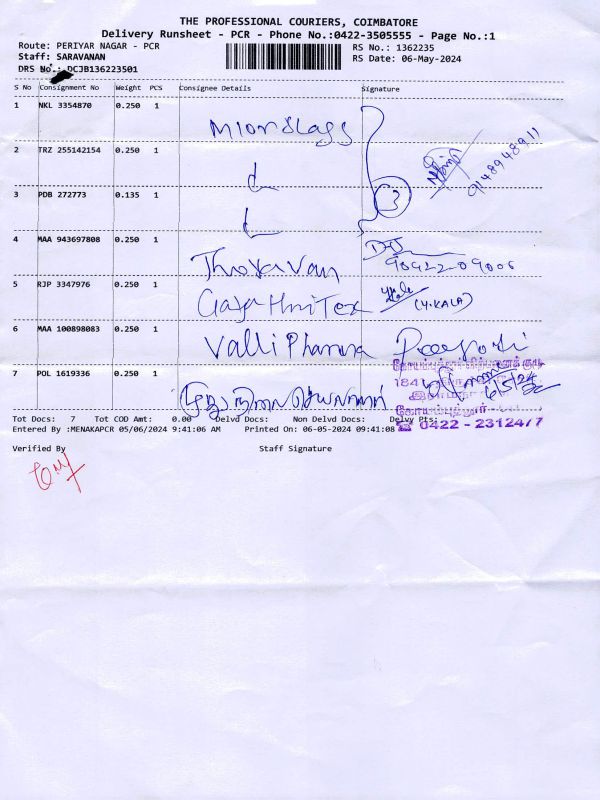 THE PROFESSIONAL COURIERS, COIMBATORE
Delivery Runsheet - PCR - Phone No.:0422-3505555 - Page No.:1
Route: PERIYAR NAGAR - PCR
RS No.: 1362235
Staff: SARAVANAN
RS Date: 06-May-2024
DRS No.: DCJB136223501
S No Consignment No Weight PCS Consignee Details Signature
1 NKL 3354870 0.250 1
2 TRZ 255142154 0.250 1
9148948911
3 PDB 272773 0.135 1
3
4 MAA 943697808 0.250 1
90422-09006
5 RJP 3347976 0.250 1
(Y.KALA)
6 MAA 100898083 0.250 1 Valli Pharma
7 POL 1619336 0.250 1
184
6/5/24
Tot Docs: 7 Tot COD Amt: 0.00 Delvd Docs: Non Delvd Docs: Delvy Pts:
Entered By :MENAKAPCR 05/06/2024 9:41:06 AM Printed On: 06-05-2024 09:41:08
☎ 0422 - 2312477
Verified By Staff Signature